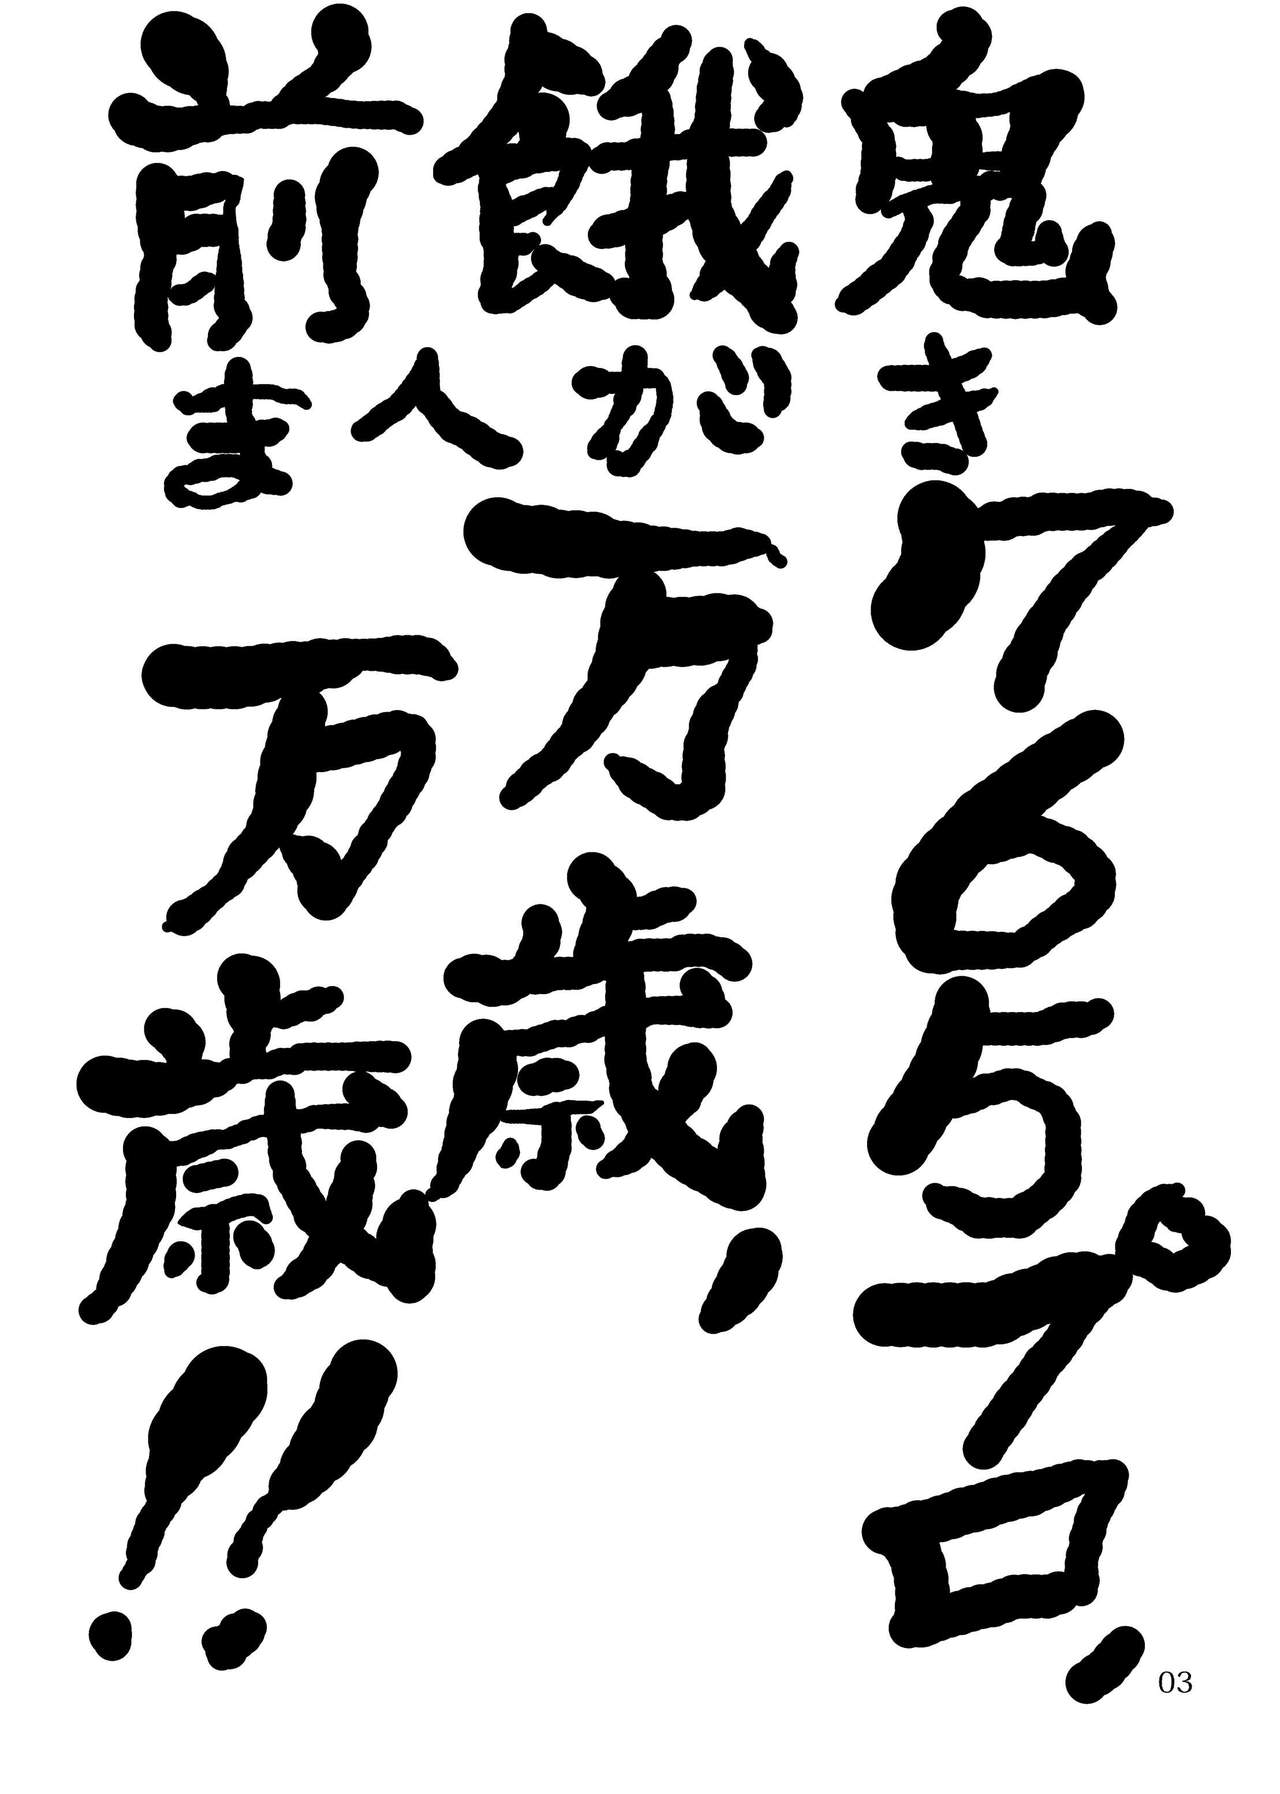 前餓鬼
まへがき
765プロ、
万歳、
万歳!!
03